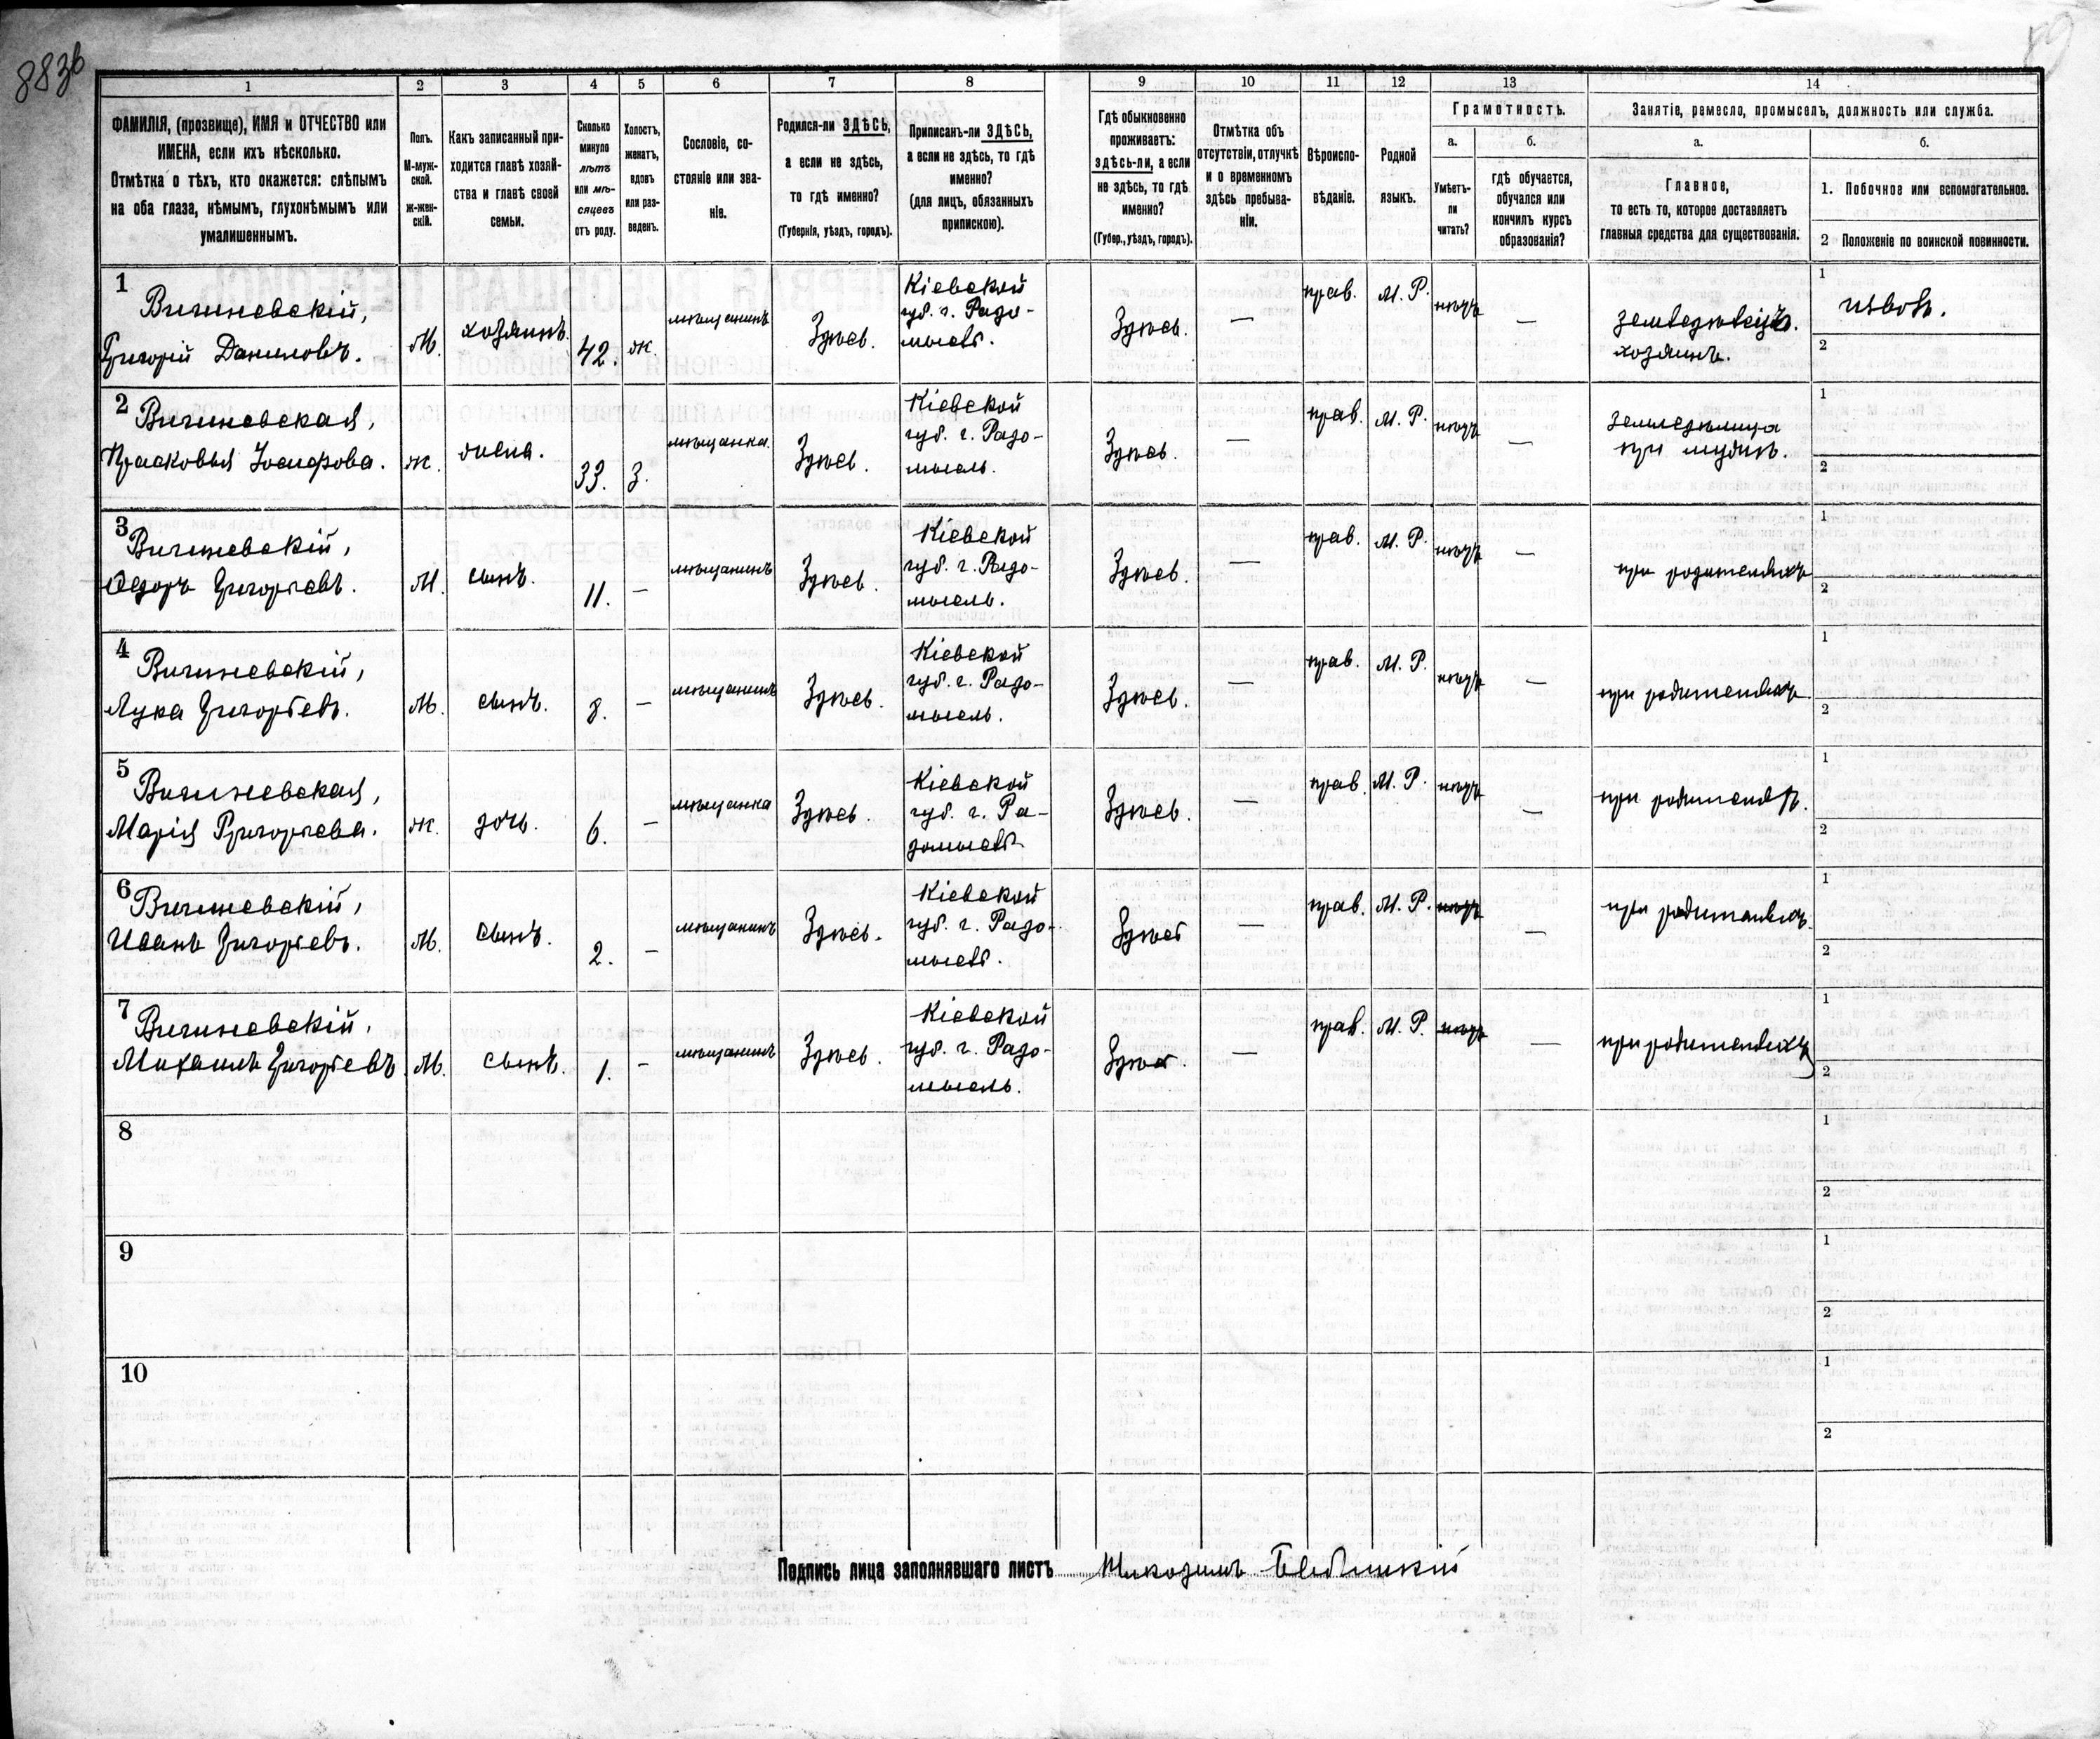 883б
89
1 2 3 4 5 6 7 8 9 10 11 12 13 14
ФАМИЛІЯ, (прозвище), ИМЯ и ОТЧЕСТВО или
ИМЕНА, если ихъ нѣсколько.
Отмѣтка о тѣхъ, кто окажется: слѣпымъ
на оба глаза, нѣмымъ, глухонѣмымъ или
умалишеннымъ.
Полъ.
М-муж-
ской.
Ж-жен-
скій.
Какъ записанный при-
ходится главѣ хозяй-
ства и главѣ своей
семьи.
Сколько
минуло
лѣтъ
или мѣ-
сяцевъ
отъ роду.
Холостъ,
женатъ,
вдовъ
или раз-
веденъ.
Сословіе, со-
стояніе или зва-
ніе.
Родился-ли ЗДѢСЬ,
а если не здѣсь,
то гдѣ именно?
(Губернія, уѣздъ, городъ).
Приписанъ-ли ЗДѢСЬ,
а если не здѣсь, то гдѣ
именно?
(для лицъ, обязанныхъ
припискою).
Гдѣ обыкновенно
проживаетъ:
здѣсь-ли, а если
не здѣсь, то гдѣ
именно?
(Губер., уѣздъ, городъ).
Отмѣтка объ
отсутствіи, отлучкѣ
и о временномъ
здѣсь пребыва-
ніи.
Вѣроиспо-
вѣданіе.
Родной
языкъ.
Грамотность.
а.
Умѣетъ-
ли
читать?
б.
гдѣ обучается,
обучался или
кончилъ курсъ
образованія?
Занятіе, ремесло, промыселъ, должность или служба.
а.
Главное,
то есть то, которое доставляетъ
главныя средства для существованія.
б.
1. Побочное или вспомогательное.
2 Положеніе по воинской повинности.
1
Вишневскій,
Григорій Даниловъ.
М.
хозяинъ.
42.
ж.
мѣщанинъ
Здѣсь.
Кіевской
губ. г. Радо-
мысль.
Здѣсь.
—
прав.
М. Р.
нѣтъ
—
земледѣлецъ.
хозяинъ.
1
извозъ.
2
2
Вишневская,
Прасковья Іосифова.
ж.
жена.
33.
З.
мѣщанка
Здѣсь.
Кіевской
губ. г. Радо-
мысль.
Здѣсь.
—
прав.
М. Р.
нѣтъ
—
земледѣлица
при мужѣ.
1
2
3
Вишневскій,
Федоръ Григорьевъ.
М.
сынъ.
11.
—
мѣщанинъ
Здѣсь.
Кіевской
губ. г. Радо-
мысль.
Здѣсь.
—
прав.
М. Р.
нѣтъ
—
при родителяхъ
1
2
4
Вишневскій,
Лука Григорьевъ.
М.
сынъ.
8.
—
мѣщанинъ
Здѣсь.
Кіевской
губ. г. Радо-
мысль.
Здѣсь.
—
прав.
М. Р.
нѣтъ
—
при родителяхъ.
1
2
5
Вишневская,
Марія Григорьева.
ж.
дочь.
6.
—
мѣщанка
Здѣсь.
Кіевской
губ. г. Ра-
домысль
Здѣсь.
—
прав.
М. Р.
нѣтъ
—
при родителях.
1
2
6
Вишневскій,
Иванъ Григорьевъ.
М.
сынъ.
2.
—
мѣщанинъ
Здѣсь.
Кіевской
губ. г. Радо-
мысль.
Здѣсь
—
прав.
М. Р.
нѣтъ
—
при родителяхъ.
1
2
7
Вишневскій,
Михаилъ Григорьевъ
М.
сынъ.
1.
—
мѣщанинъ
Здѣсь.
Кіевской
губ. г. Радо-
мысль.
Здѣсь.
—
прав.
М. Р.
нѣтъ
—
при родителяхъ
1
2
8
1
2
9
1
2
10
1
2
Подпись лица заполнявшаго листъ Никодимъ